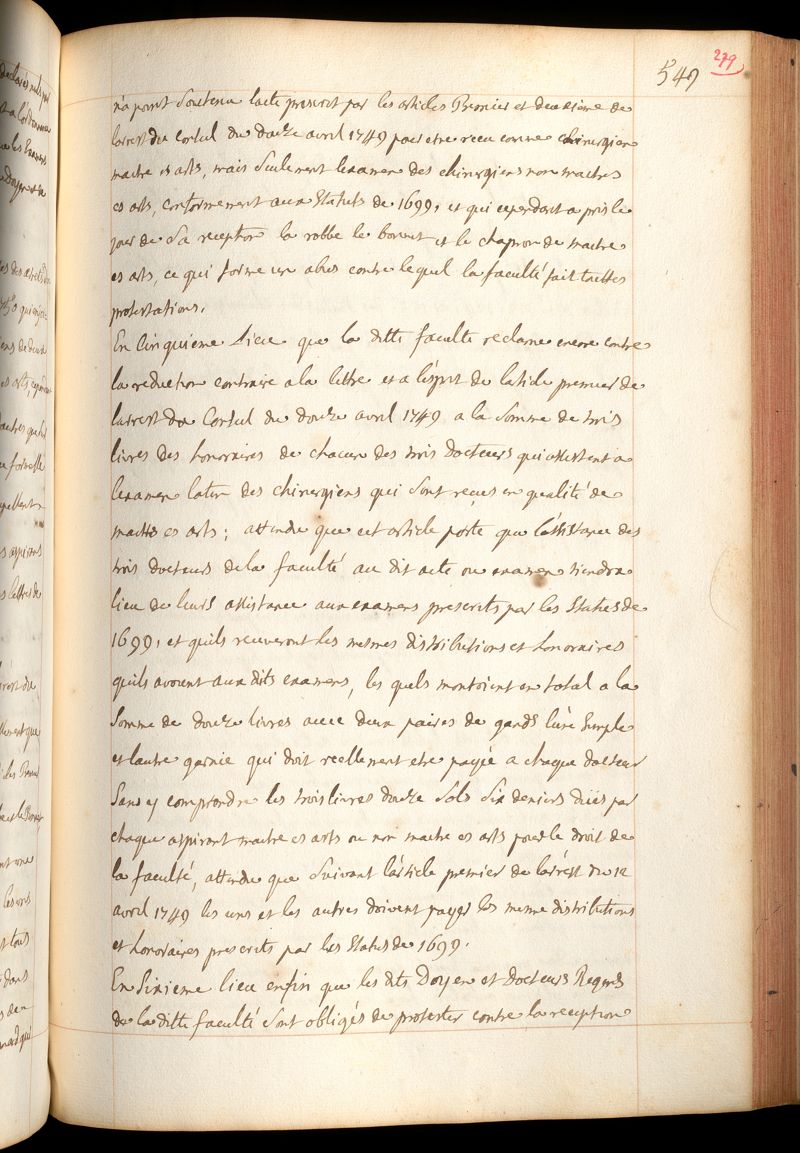 549
279
n'a point soutenu l'acte prescrit par les articles Premier et deuxième de
larrest du Conseil du douze avril 1749 pour etre recu comme chirurgien
maitre es arts, mais seulement lexamen des chirurgiens non maitres
es arts, conformement aux Statuts de 1699, et qui cependant a pris le
jour de sa reception la robbe le bonnet et le chapron de maitre
es arts, ce qui forme un abus contre lequel la faculté fait touttes
protestations.
En Cinquieme Lieu que la ditte faculte reclame encore contre
la reduction contraire a la lettre et a l'esprit de larticle premier de
larrest du Conseil du douze avril 1749 a la somme de trois
livres des honoraires de chacun des trois Docteurs qui assistent a
lexamen latin des chirurgiens qui sont reçus en qualité de
maitres es arts; attendu que cet article porte que l'assistance des
trois docteurs de la faculté au dit acte ou examen tiendra
lieu de leurs assistance aux examens prescrits par les Statuts de
1699, et quils recevront les mesmes distributions et honoraires
quils avoient aux dits examens, les quels montoient en total a la
somme de douze livres avec deux paires de gands l'une simple
et lautre garnie qui doit reellement etre payée a chaque docteur
sans y comprendre les trois livres douze sols six deniers dües par
chaque aspirant maitre es arts ou non maitre es arts pour le droit de
la faculté, attendu que suivant l'article premier de larrest du 12
avril 1749 les uns et les autres doivent payer les mesme distributions
et honoraires prescrits par les Statuts de 1699.
En Sixieme lieu enfin que les dits Doyen et Docteurs Regents
de la ditte faculté sont obligés de protester contre la reception